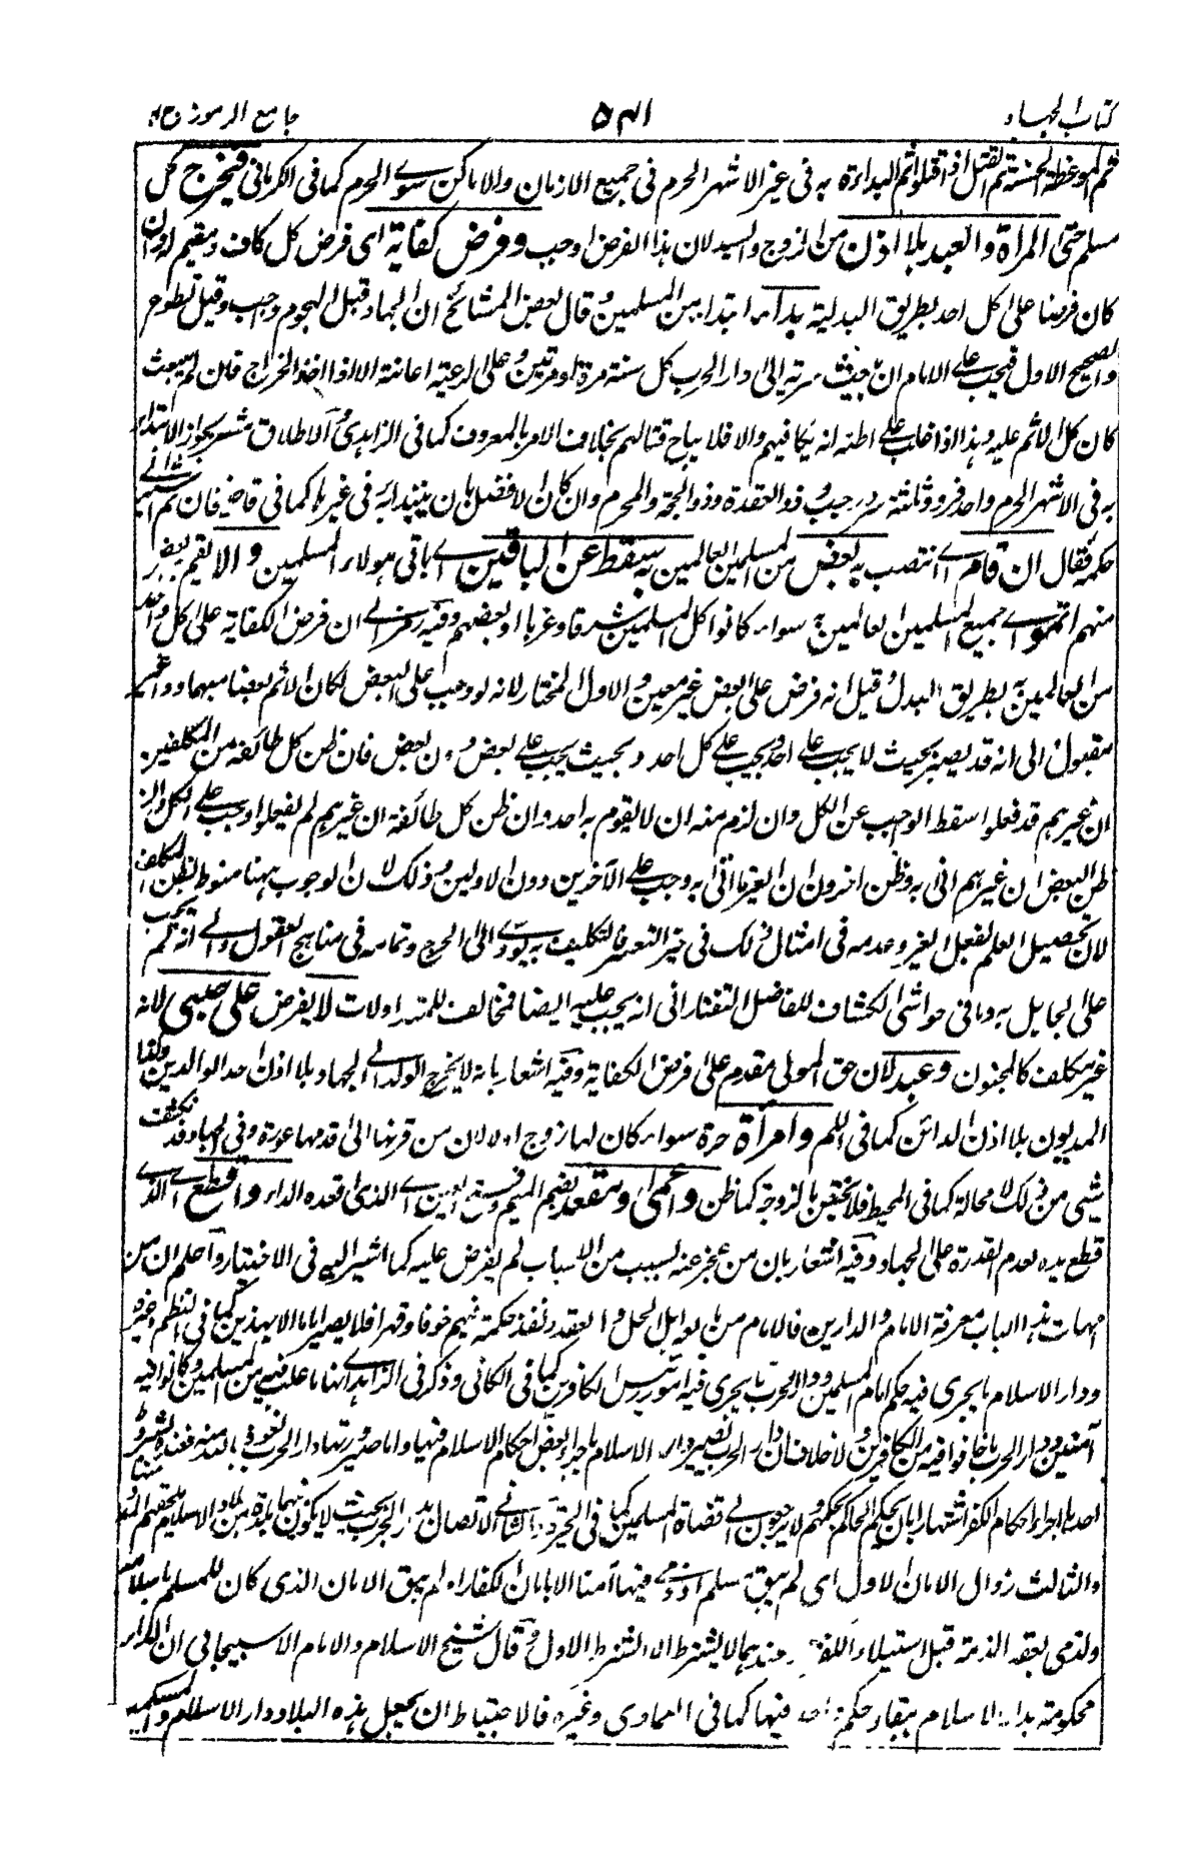 كتاب الجهاد
٥٨١
جامع الرموز ج٢
ثم الموعظة الحسنة ثم القتل اذا قتلوا ثم البداءة به فى غير الاشهر الحرم فى جميع الازمان والاماكن سوى الحرم كما فى الكرمانى فيخرج كل
مسلم حتى المرأة والعبد بلا اذن من الزوج والسيد لان هذا الفرض اوجب وفرض كفاية اى فرض كل كاف ومقيم لو
كان فرضا على كل احد بطريق البدلية بدأ ابتداء من المسلمين وقال بعض المشائخ ان الجهاد قبل الهجوم واجب وقيل تطوع
والصحيح الاول فيجب على الامام ان يبعث سرية الى دار الحرب كل سنة مرة او مرتين وعلى الرعية اعانته الا اذا اخذ الخراج فان لم يبعث
كان كل الاثم عليه وهذا اذا غلب على ظنه انه يكافيهم والا فلا يباح قتالهم بخلاف الامر بالمعروف كما فى الزاهدى والاطلاق مشعر بجواز الابتداء
به فى الاشهر الحرم واحد فرد وثلثة سرد رجب وذو القعدة وذو الحجة والمحرم وان كان الافضل ان يبتدأ به فى غيرها كما فى قاضيخان ثم اشار الى
حكمه فقال ان قام اى انتصب به بعض من المسلمين العالمين به سقط عن الباقين اى باقى هولاء المسلمين والا يقم بعض
منهم اثموا اى جميع المسلمين العالمين به سواء كانوا كل المسلمين شرقا وغربا او بعضهم وفيه رمز الى ان فرض الكفاية على كل واحد
من العالمين به بطريق البدل وقيل انه فرض على بعض غير معين والاول المختار لانه لو وجب على البعض لكان الاثم بعضا مبهما وذا غير
مقبول والى انه قد يصير بحيث لا يجب على احد وبحيث يجب على كل احد وبحيث يجب على بعض دون بعض فان ظن كل طائفة من المكلفين
ان غيرهم قد فعلوا سقط الواجب عن الكل وان لزم منه ان لا يقوم به احد وان ظن كل طائفة ان غيرهم لم يفعلوا وجب على الكل وان
ظن البعض ان غيرهم اتى به وظن اخرون ان الغير ما اتى به وجب على الآخرين دون الاولين وذلك لان الوجوب ههنا منوط بظن المكلف
لان تحصيل العلم بفعل الغير وعدمه فى امثال ذلك فى حيز التعسر فالتكليف به يؤدى الى الحرج وتمامه فى مناهج العقول والى انه لم يجب
على الجاهل به وما فى حواشى الكشاف للفاضل التفتازانى انه يجب عليه ايضا فمخالف للمتداولات لا يفرض على صبى لانه
غير مكلف كالمجنون وعبد لان حق المولى مقدم على فرض الكفاية وفيه اشعار بانه لا يخرج الولد الى الجهاد بلا اذن احد الوالدين وكذا
المديون بلا اذن الدائن كما فى اللم وامرأة حرة سواء كان لها زوج او لا لان من قرنها الى قدمها عورة وفى الجهاد قد تكشف
شيئ من ذلك لا محالة كما فى المحيط فلا يختص بالزوجة كما ظن واعمى ومقعد بضم الميم وفتح العين اى الذى اقعده الداء واقطع اى الذى
قطع يده لعدم القدرة على الجهاد وفيه اشعار بان من عجز عنه بسبب من الاسباب لم يفرض عليه كما اشير اليه فى الاختيار واعلم ان من
مهمات هذا الباب معرفة الامام والدارين فالامام من بايعه اهل الحل والعقد ونفذ حكمه فيهم خوفا وقهرا فلا يصير اماما الا بهذين كما فى النظم وغيره
ودار الاسلام ما يجرى فيه حكم امام المسلمين ودار الحرب ما يجرى فيه امر رئيس الكافرين كما فى الكافى وذكر فى الزاهدى انها ما غلب فيه من المسلمين وكانوا فيه
آمنين ودار الحرب ما خافوا فيه من الكافرين ولا خلاف ان دار الحرب تصير دار الاسلام باجراء بعض احكام الاسلام فيها واما صيرورتها دار الحرب نعوذ بالله منه فعنده بشروط
احدها اجراء احكام الكفر اشتهارا بان يحكم الحاكم بحكمهم ولا يرجعون الى قضاة المسلمين كما فى الحرة والثانى الاتصال بدار الحرب بحيث لا يكون بينهما بلدة من بلاد الاسلام يلحقهم المدد منها
والثالث زوال الامان الاول اى لم يبق مسلم او ذمى فيها آمنا الا بامان الكفار او لم يبق الامان الذى كان للمسلم باسلامه
وللذمى بعقد الذمة قبل استيلاء الكفرة وعندهما لا يشترط الا الشرط الاول وقال شيخ الاسلام والامام الاسبيجابى ان الدار
محكومة بدار الاسلام ببقاء حكم واحد فيها كما فى العمادى وغيره فالاحتياط ان يجعل هذه البلاد دار الاسلام والمسلمين